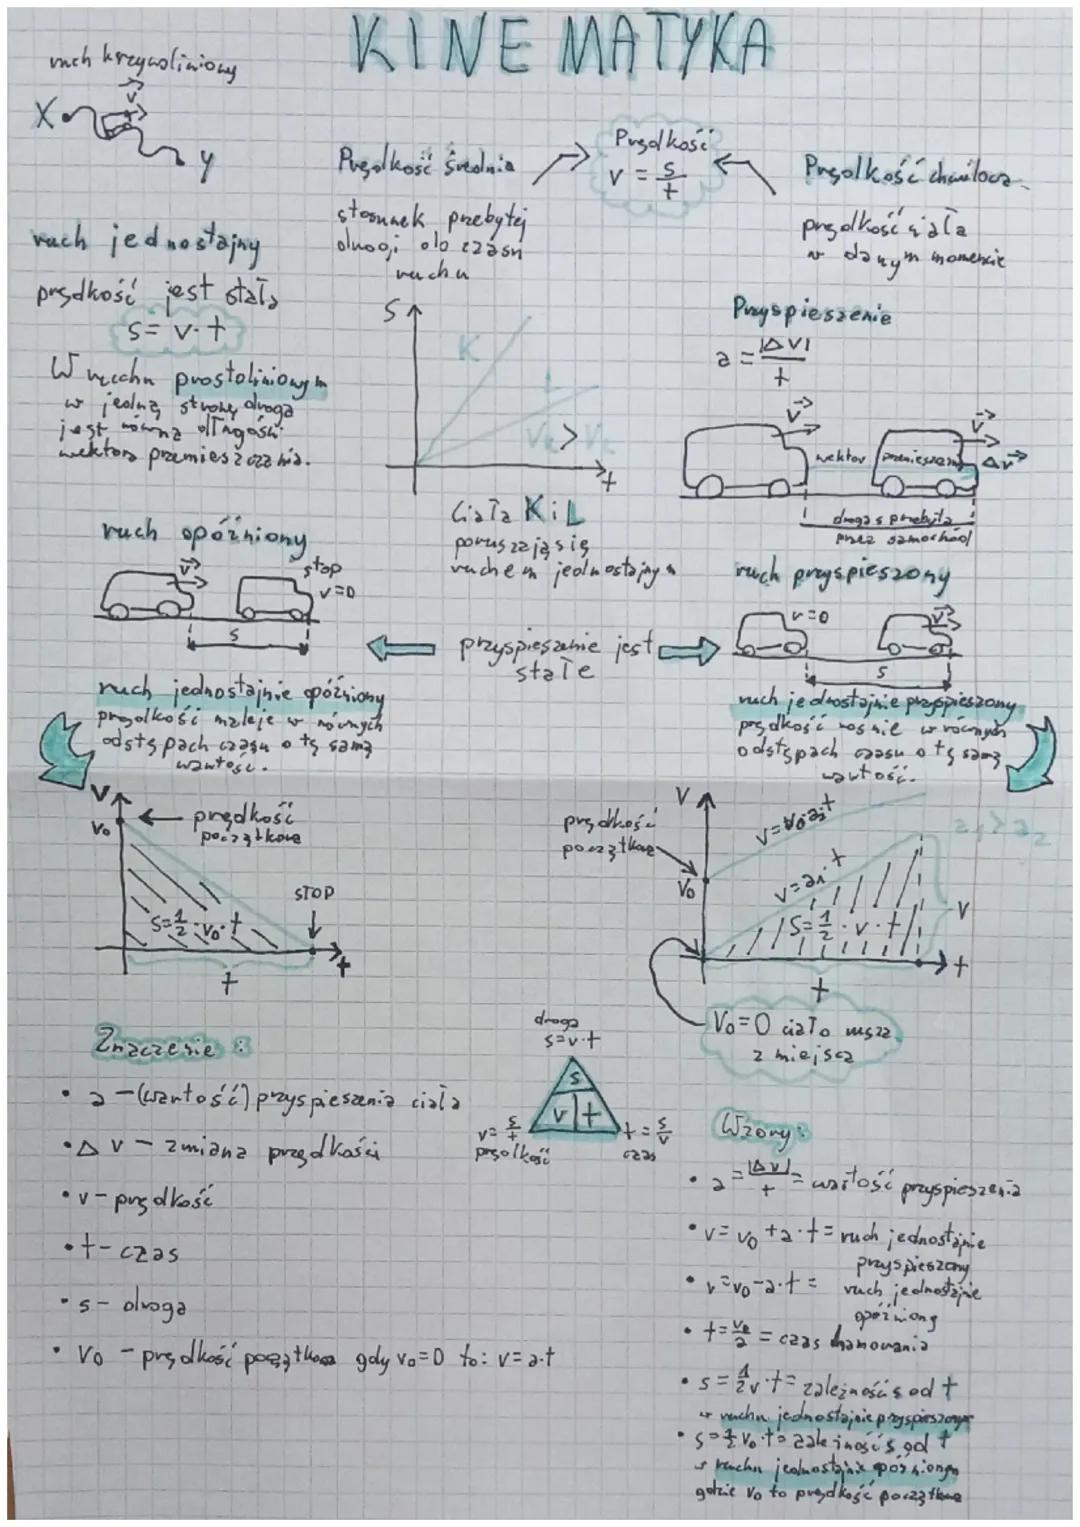 KINEMATYKA
ruch krzywoliniowy
v
X
y
ruch jednostajny
prędkość jest stała
s= v·t
W ruchu prostoliniowym
w jedną stronę droga
jest równa długości
wektora przemieszczenia.
Prędkość średnia
stosunek przebytej
drogi do czasu
ruchu
Prędkość
v = s/t
Prędkość chwilowa
prędkość ciała
w danym momencie
S
K
L
t
Ciała K i L
poruszają się
ruchem jednostajnym
Przyspieszenie
a = |Δv|/t
v
v
wektor przemieszczenia
Δv
droga s przebyta
przez samochód
ruch opóźniony
v
stop
v=0
s
przyspieszenie jest
stałe
ruch przyspieszony
v=0
v
s
ruch jednostajnie opóźniony
prędkość maleje w równych
odstępach czasu o tę samą
wartość.
ruch jednostajnie przyspieszony
prędkość rośnie w równych
odstępach czasu o tę samą
wartość.
V
V₀
prędkość
początkowa
STOP
s=1/2·v₀·t
t
t
V
prędkość
początkowa
V₀
v=a₁·t
a₁>a₂
s=1/2·v·t
V
t
t
V₀=0 ciało rusza
z miejsca
Znaczenie:
• a – (wartość) przyspieszenia ciała
• Δv – zmiana prędkości
• v – prędkość
• t – czas
• s – droga
• V₀ – prędkość początkowa gdy v₀=0 to: v=a·t
droga
s=v·t
s
v t
v=s/t
prędkość
t=s/v
czas
Wzory:
• a=|Δv|/t = wartość przyspieszenia
• v=v₀+a·t = ruch jednostajnie
przyspieszony
• v=v₀-a·t = ruch jednostajnie
opóźniony
• t=v₀/a = czas hamowania
• s=1/2v·t = zależność s od t
w ruchu jednostajnie przyspieszonym
• s=1/2v₀·t = zależność s od t
w ruchu jednostajnie opóźnionym
gdzie v₀ to prędkość początkowa